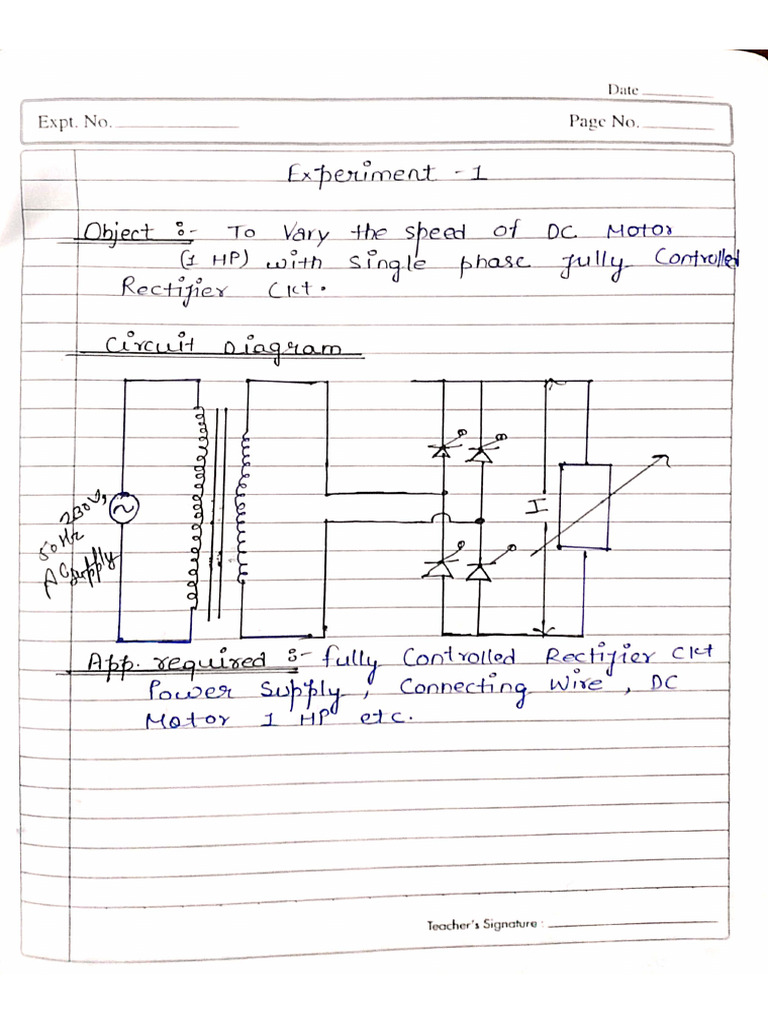 Date
Expt. No.
Page No.
Experiment - 1
Object :- To Vary the speed of DC Motor
(1 HP) with single phase fully Controlled
Rectifier Ckt.
Circuit Diagram
230V,
50Hz
AC supply
I
App. required :- fully Controlled Rectifier Ckt
Power Supply, Connecting Wire, DC
Motor 1 HP etc.
Teacher's Signature :